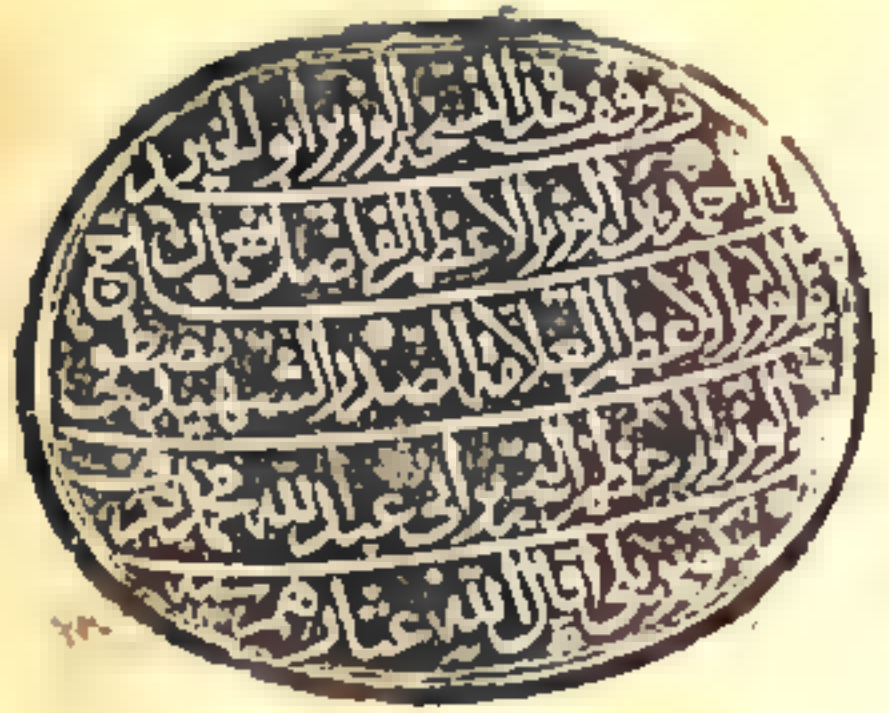 وقف هذه النسخة الوزير ابو الخير
احمد بن الوزير الاعظم الفاضل نعمان بن
الوزير الاعظم العلامة الصدر الشهيد مصطفى
الوزير الاعظم النحرير ابى عبد الله محمد
اقال الله عثارهم